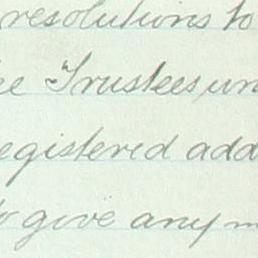 resolutions to
Trustees
registered
to give any